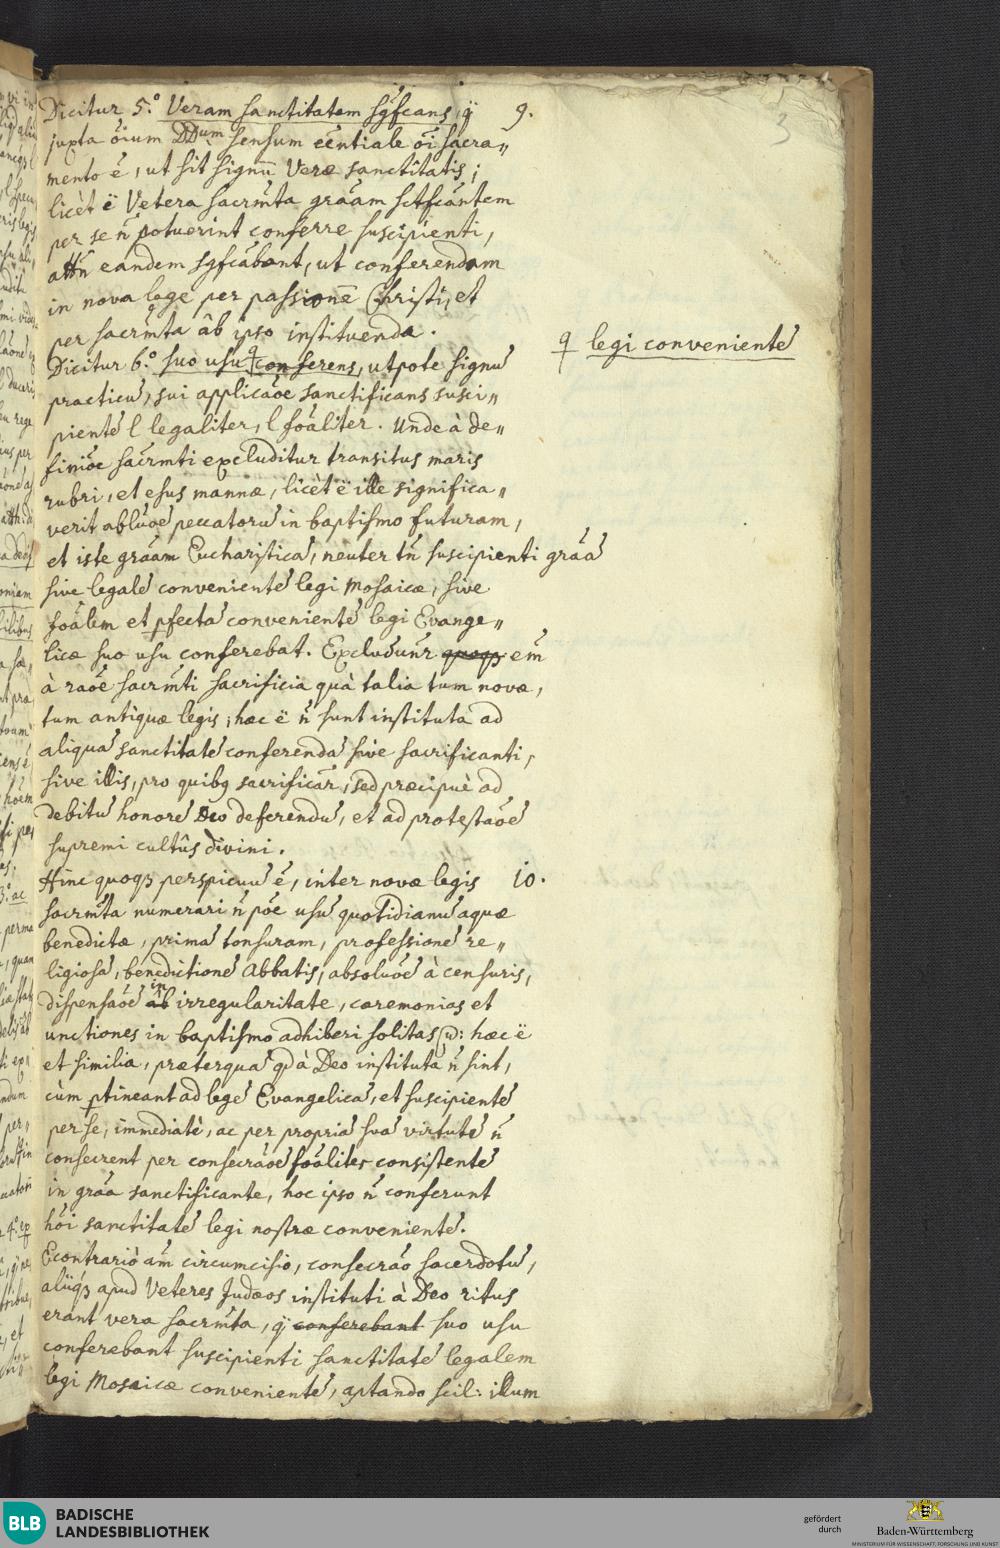 3
Dicitur 5.° Veram sanctitatem sgfcans, q̈ 9.
juxta oium DDum sensum eentiale oi sacra„
mento ē, ut sit signū Veræ sanctitatis;
licèt ë Vetera sacrmta graam sctfcantem
per se n̄ potuerint conferre suscipienti,
attn̄ eandem sgfcabant, ut conferendam
in nova lege per passionē Christi, et
per sacrmta âb ipso instituenda.
Dicitur 6.° suo usu conferens, utpote signū
ꟼ legi convenientē
practicū, sui applicaōe sanctificans susci„
pientē l legaliter, l foaliter. Unde à de„
finiōe sacrmti excluditur transitus maris
rubri, et esus mannæ, licèt ë ille significa„
verit abluōē peccatorū in baptismo futuram,
et iste graam Eucharisticā, neuter tn̄ suscipienti graā
sive legalē convenientē legi Mosaicæ, sive
foalem et pfectā convenientē legi Evange„
licæ suo usu conferebat. Excludunr quoqȝ em̄
à raōe sacrmti sacrificia quà talia tum novæ,
tum antiquæ legis; hæc ë n̄ sunt instituta ad
aliquā sanctitatē conferendā sive sacrificanti,
sive illis, pro quibȝ sacrificar̄, sed præcipuè ad
debitū honorē Deo deferendū, et ad protestaōē
supremi cultûs divini.
Hinc quoqȝ perspicuū ē, inter novæ legis 10.
sacrmta numerari n̄ poe usū quotidianū aquæ
benedictæ, primā tonsuram, professionē re„
ligiosā, benedictionē Abbatis, absoluōē à censuris,
dispensaōē ab in irregularitate, cæremonias et
unctiones in baptismo adhiberi solitas: hæc ë
et similia, præterquā qd à Deo institutā n̄ sint,
cùm ptineant ad legē Evangelicā, et suscipientē
per se, immediatè, ac per propriā suā virtutē n̄
consecrent per consecraōē foaliter consistentē
in graā sanctificante, hoc ipso n̄ conferunt
hoi sanctitatē legi nostræ convenientē.
Econtrariò am̄ circumcisio, consecraō sacerdotū,
aliiqȝ apud Veteres Judæos instituti à Deo ritus
erant vera sacrmta, q̈ conferebant suo usu
conferebant suscipienti sanctitatē legalem
legi Mosaicæ convenientē, aptando scil: illum
BLB
BADISCHE
LANDESBIBLIOTHEK
gefördert
durch
Baden-Württemberg
MINISTERIUM FÜR WISSENSCHAFT, FORSCHUNG UND KUNST